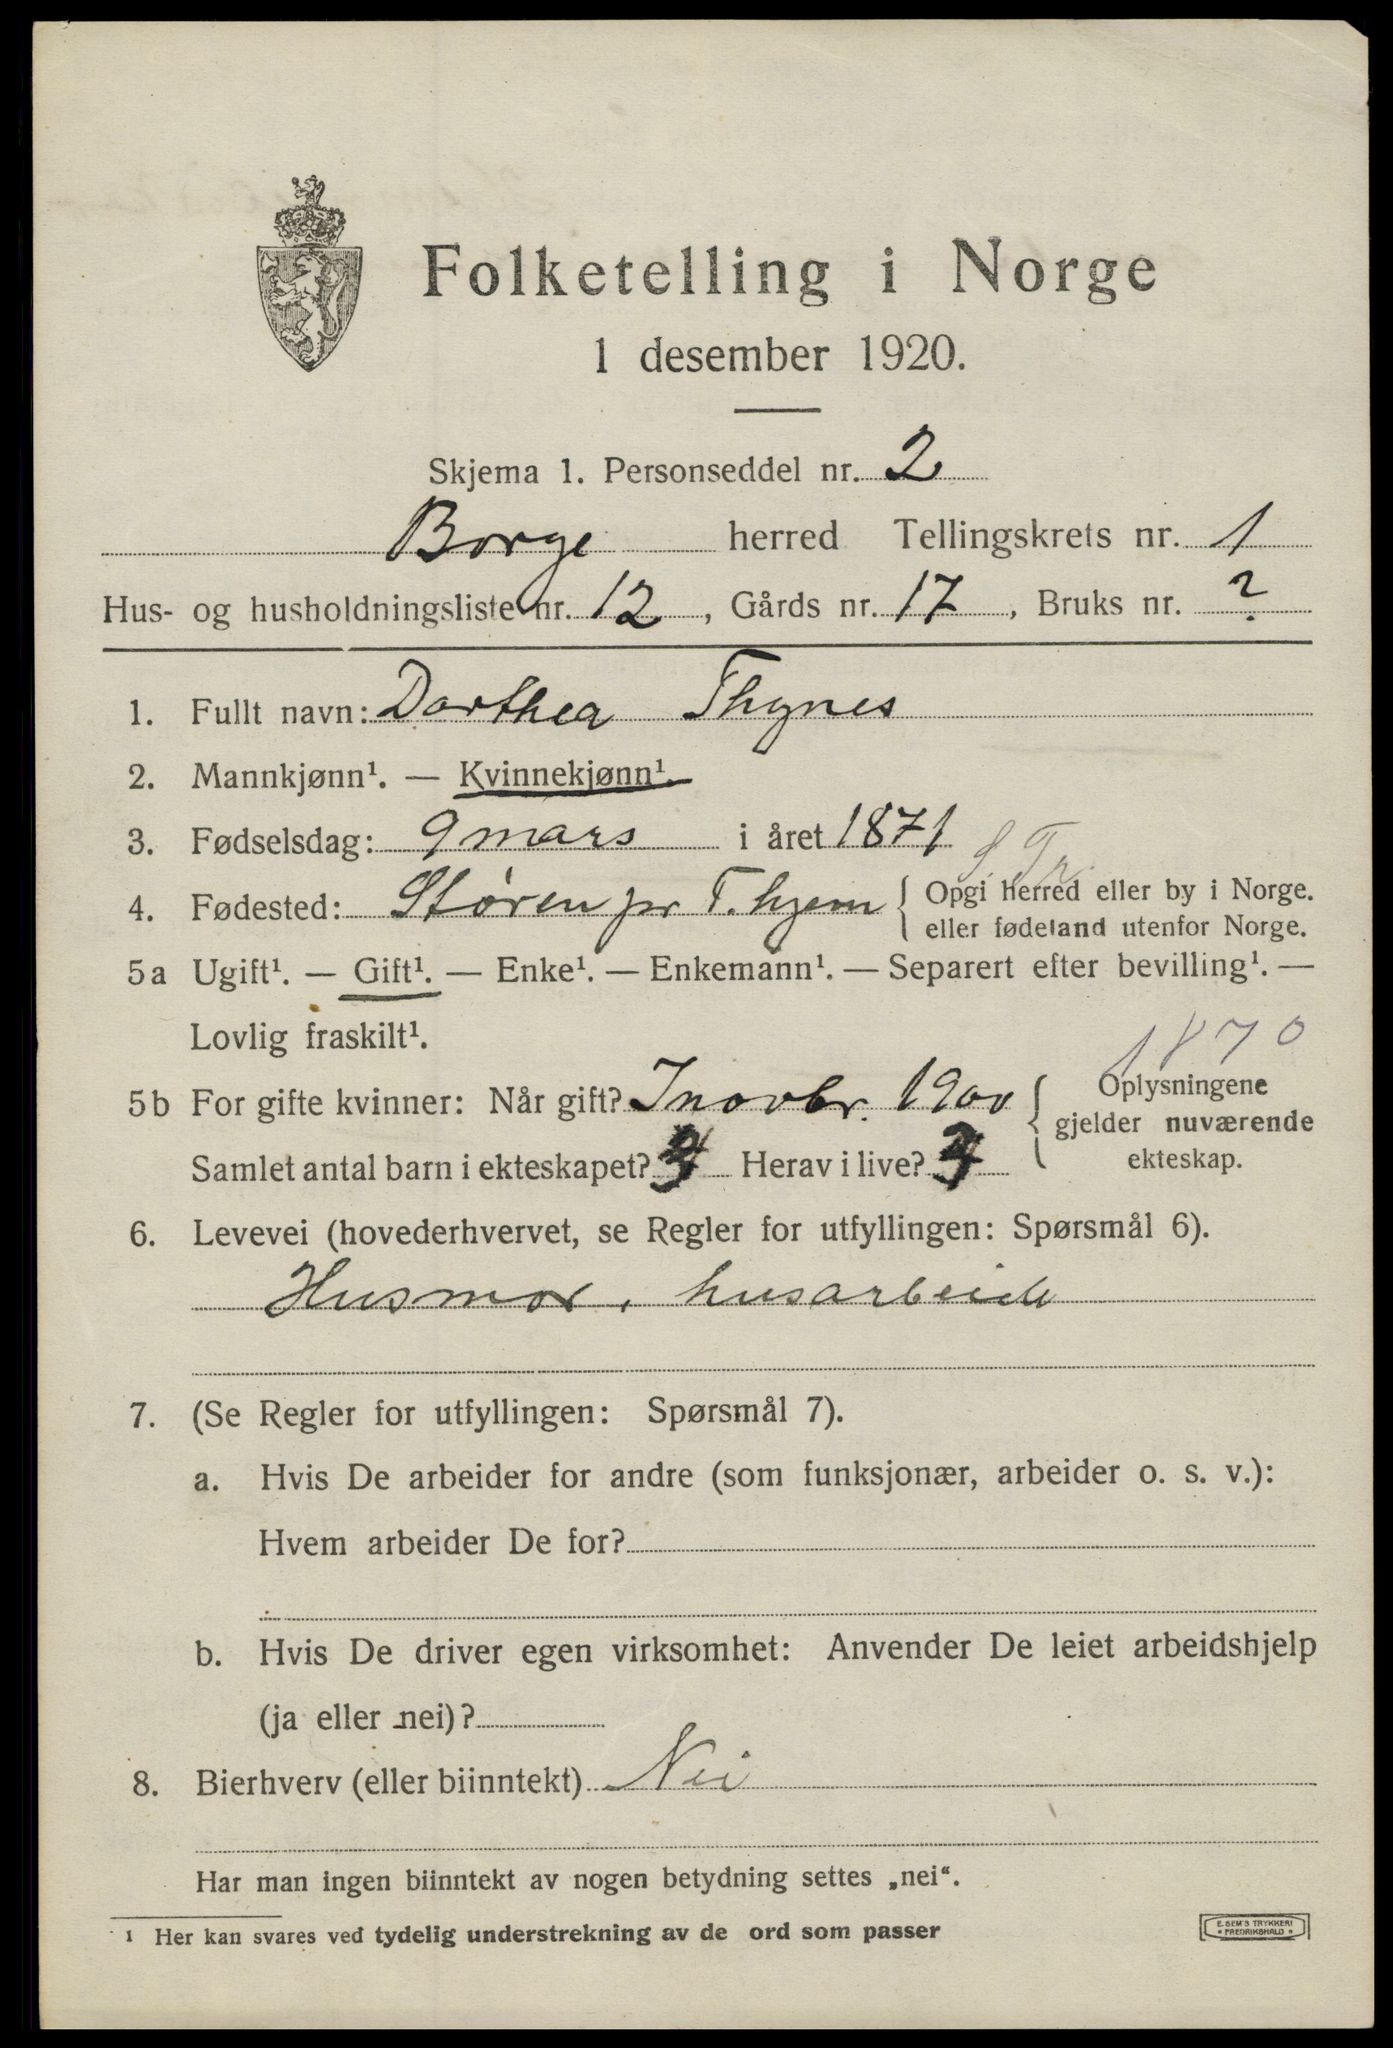 Folketelling i Norge
1 desember 1920.
Skjema 1. Personseddel nr. 2
Borge herred Tellingskrets nr. 1
Hus- og husholdningsliste nr. 12, Gårds nr. 17, Bruks nr. ?
1. Fullt navn: Dorthea Thynes
2. Mannkjønn¹. — Kvinnekjønn¹.
3. Fødselsdag: 9 mars i året 1871
S. Tr.
4. Fødested: Støren pr T.hjem { Opgi herred eller by i Norge.
eller fødeland utenfor Norge.
5a Ugift¹. — Gift¹. — Enke¹. — Enkemann¹. — Separert efter bevilling¹. —
Lovlig fraskilt¹.
1870
5b For gifte kvinner: Når gift? I novbr. 1900 { Oplysningene
gjelder nuværende
ekteskap.
Samlet antal barn i ekteskapet? Herav i live?
6. Levevei (hovederhvervet, se Regler for utfyllingen: Spørsmål 6).
Husmor, husarbeide
7. (Se Regler for utfyllingen: Spørsmål 7).
a. Hvis De arbeider for andre (som funksjonær, arbeider o. s. v.):
Hvem arbeider De for?
b. Hvis De driver egen virksomhet: Anvender De leiet arbeidshjelp
(ja eller nei)?
8. Bierhverv (eller biinntekt) Nei
Har man ingen biinntekt av nogen betydning settes „nei“.
¹ Her kan svares ved tydelig understrekning av de ord som passer
E. SEM'S TRYKKERI
* FREDRIKSHALD *